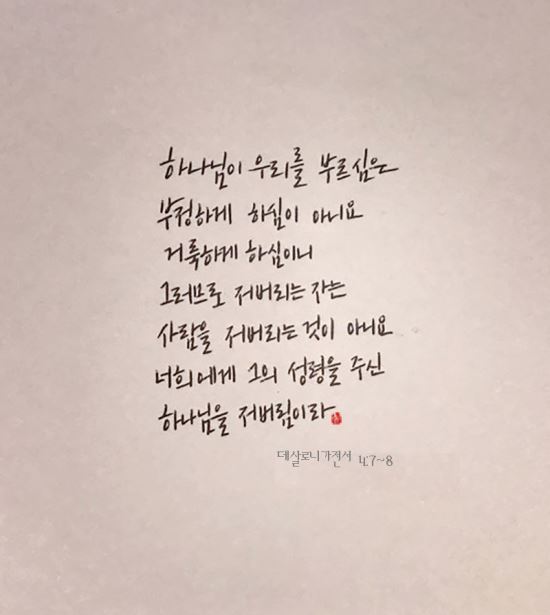 하나님이 우리를 부르심은
부정하게 하심이 아니요
거룩하게 하심이니
그러므로 저버리는 자는
사람을 저버리는 것이 아니요
너희에게 그의 성령을 주신
하나님을 저버림이라
데살로니가전서 4:7~8